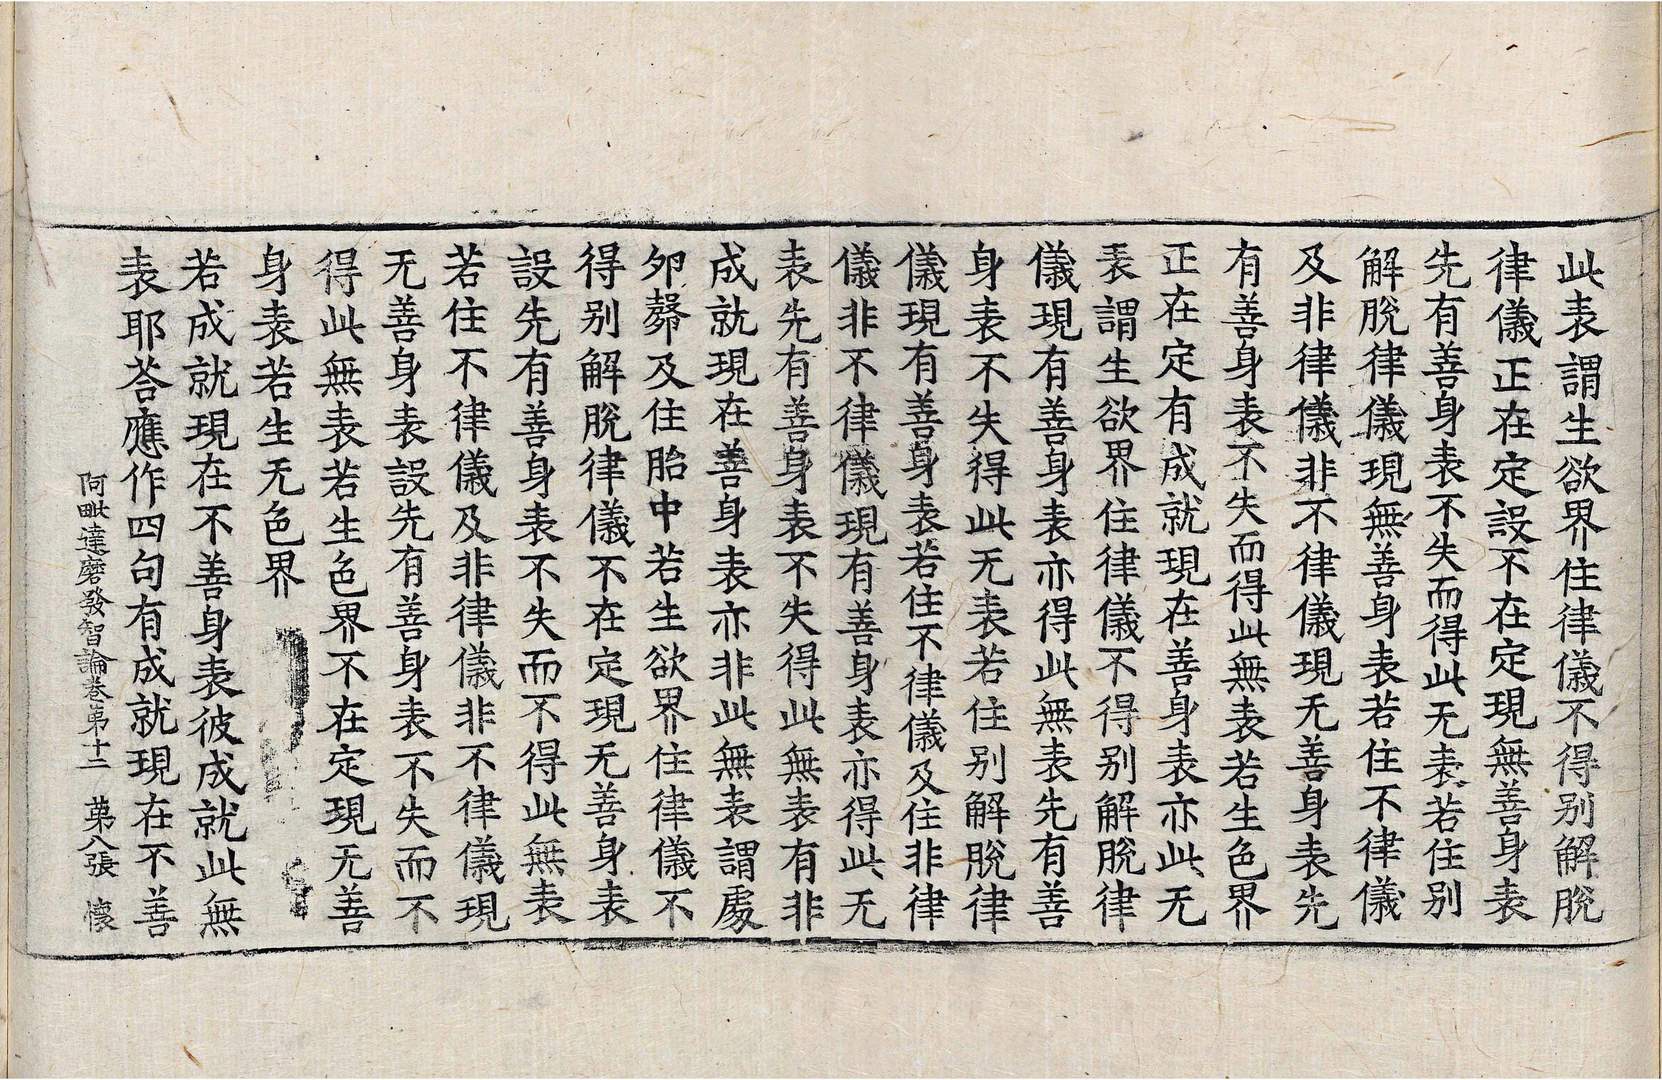 此表謂生欲界住律儀不得別解脫
律儀正在定設不在定現無善身表
先有善身表不失而得此无表若住別
解脫律儀現無善身表若住不律儀
及非律儀非不律儀現无善身表先
有善身表不失而得此無表若生色界
正在定有成就現在善身表亦此无
表謂生欲界住律儀不得別解脫律
儀現有善身表亦得此無表先有善
身表不失得此无表若住別解脫律
儀現有善身表若住不律儀及住非律
儀非不律儀現有善身表亦得此无
表先有善身表不失得此無表有非
成就現在善身表亦非此無表謂處
卵㲉及住胎中若生欲界住律儀不
得別解脫律儀不在定現无善身表
設先有善身表不失而不得此無表
若住不律儀及非律儀非不律儀現
无善身表設先有善身表不失而不
得此無表若生色界不在定現无善
身表若生无色界
若成就現在不善身表彼成就此無
表耶荅應作四句有成就現在不善
阿毗達磨發智論卷苐十二 苐八張 懷